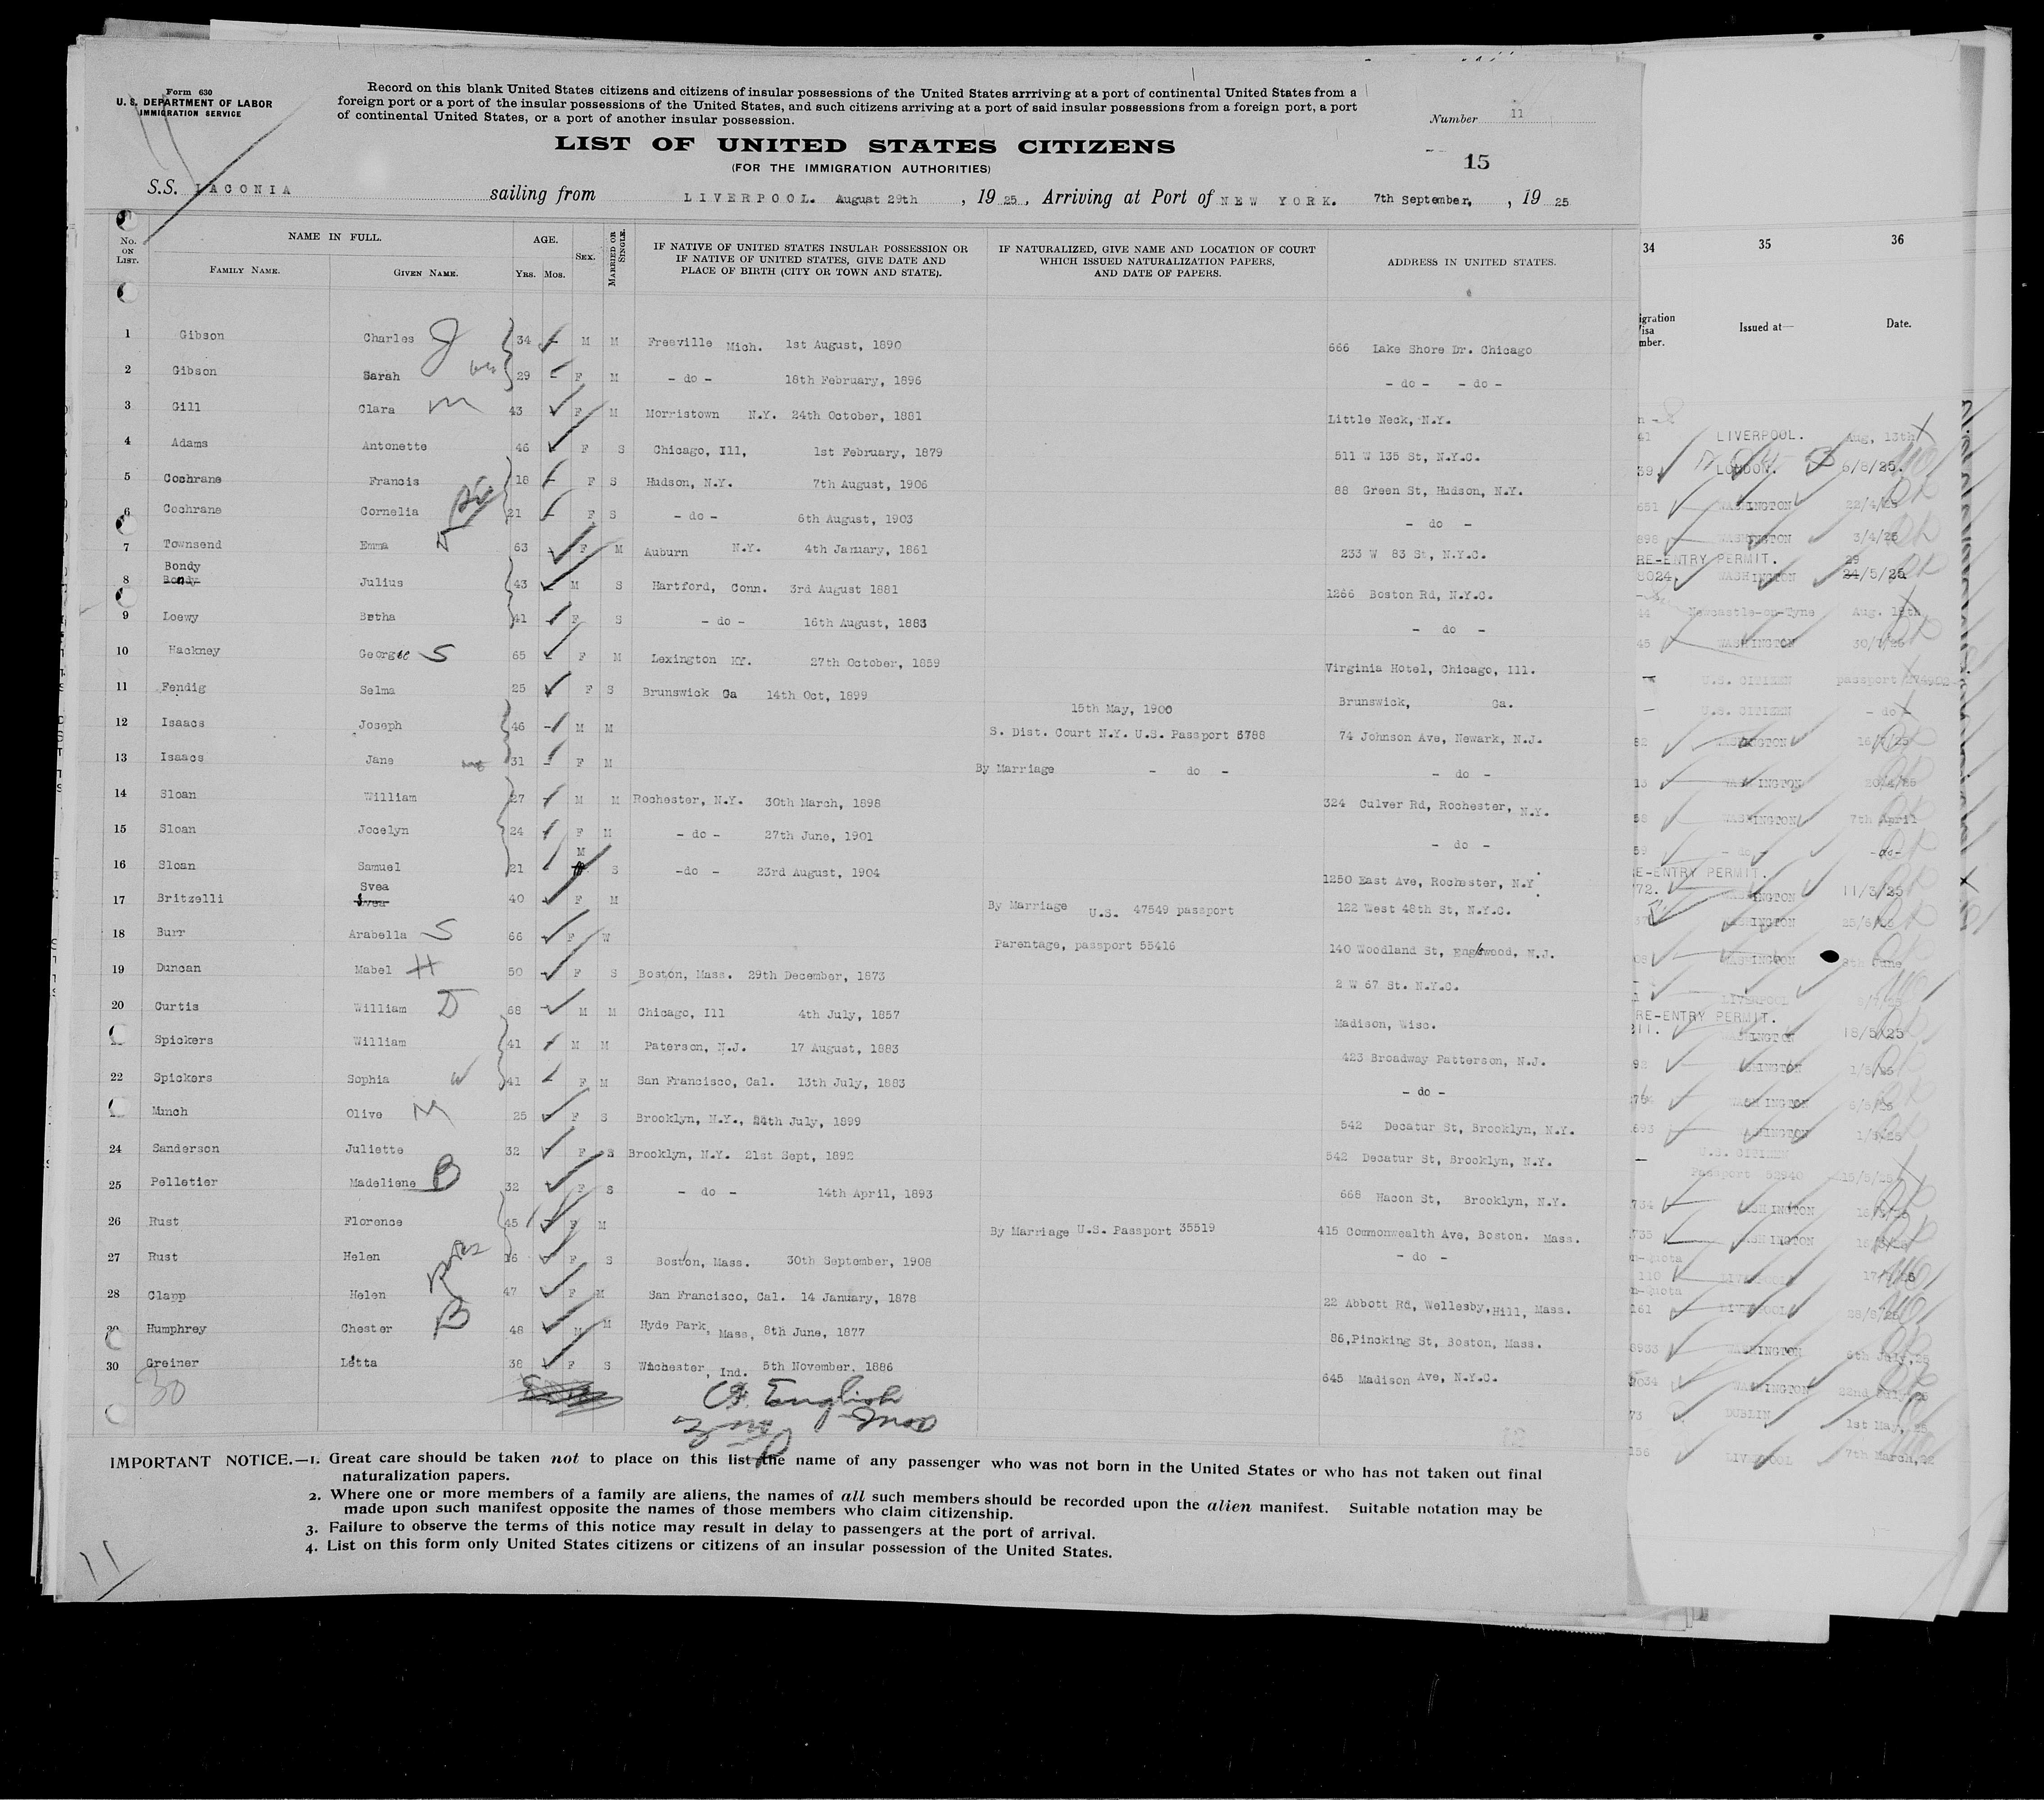 Form 630
U. S. DEPARTMENT OF LABOR
IMMIGRATION SERVICE
Record on this blank United States citizens and citizens of insular possessions of the United States arrriving at a port of continental United States from a
foreign port or a port of the insular possessions of the United States, and such citizens arriving at a port of said insular possessions from a foreign port, a port
of continental United States, or a port of another insular possession.
Number 11
LIST OF UNITED STATES CITIZENS
(FOR THE IMMIGRATION AUTHORITIES)
15
S.S. LACONIA sailing from LIVERPOOL. August 29th, 1925, Arriving at Port of NEW YORK. 7th September, 1925
No. ON LIST. NAME IN FULL. FAMILY NAME. GIVEN NAME. AGE. YRS. MOS. SEX. MARRIED OR SINGLE. IF NATIVE OF UNITED STATES INSULAR POSSESSION OR IF NATIVE OF UNITED STATES, GIVE DATE AND PLACE OF BIRTH (CITY OR TOWN AND STATE). IF NATURALIZED, GIVE NAME AND LOCATION OF COURT WHICH ISSUED NATURALIZATION PAPERS, AND DATE OF PAPERS. ADDRESS IN UNITED STATES.
34 35 36
Issued at— Date.
1 Gibson Charles 34 M M Freeville Mich. 1st August, 1890 666 Lake Shore Dr. Chicago
2 Gibson Sarah 29 F M - do - 18th February, 1896 - do - - do -
3 Gill Clara 43 F M Morristown N.Y. 24th October, 1881 Little Neck, N.Y.
4 Adams Antonette 46 F S Chicago, Ill, 1st February, 1879 511 W 135 St, N.Y.C.
5 Cochrane Francis 18 F S Hudson, N.Y. 7th August, 1906 88 Green St, Hudson, N.Y.
6 Cochrane Cornelia 21 F S - do - 6th August, 1903 - do -
7 Townsend Emma 63 F M Auburn N.Y. 4th January, 1861 233 W 83 St, N.Y.C.
8 Bondy Julius 43 M S Hartford, Conn. 3rd August 1881 1266 Boston Rd, N.Y.C.
9 Loewy Betha 41 F S - do - 16th August, 1883 - do -
10 Hackney George S 65 F M Lexington KY. 27th October, 1859 Virginia Hotel, Chicago, Ill.
11 Fendig Selma 25 F S Brunswick Ga 14th Oct, 1899 Brunswick, Ga.
12 Isaacs Joseph 46 M M 15th May, 1900 S. Dist. Court N.Y. U.S. Passport 6788 74 Johnson Ave, Newark, N.J.
13 Isaacs Jane 31 F M By Marriage - do - - do -
14 Sloan William 27 M M Rochester, N.Y. 30th March, 1898 324 Culver Rd, Rochester, N.Y.
15 Sloan Jocelyn 24 F M - do - 27th June, 1901 - do -
16 Sloan Samuel 21 M S -do - 23rd August, 1904 1250 East Ave, Rochester, N.Y.
17 Britzelli Svea 40 F M By Marriage U.S. 47549 passport 122 West 48th St, N.Y.C.
18 Burr Arabella S 66 F W Parentage, passport 55416 140 Woodland St, Englewood, N.J.
19 Duncan Mabel H 50 F S Boston, Mass. 29th December, 1873 2 W 67 St. N.Y.C.
20 Curtis William D 68 M M Chicago, Ill 4th July, 1857 Madison, Wisc.
Spickers William 41 M M Paterson, N.J. 17 August, 1883 423 Broadway Patterson, N.J.
22 Spickers Sophia W 41 F M San Francisco, Cal. 13th July, 1883 - do -
Munch Olive M 25 F S Brooklyn, N.Y., 24th July, 1899 542 Decatur St, Brooklyn, N.Y.
24 Sanderson Juliette 32 F S Brooklyn, N.Y. 21st Sept, 1892 542 Decatur St, Brooklyn, N.Y.
25 Pelletier Madeliene B 32 F S - do - 14th April, 1893 668 Hacon St, Brooklyn, N.Y.
26 Rust Florence 45 F M By Marriage U.S. Passport 35519 415 Commonwealth Ave, Boston. Mass.
27 Rust Helen 16 F S Boston, Mass. 30th September, 1908 - do -
28 Clapp Helen 47 F M San Francisco, Cal. 14 January, 1878 22 Abbott Rd, Wellesby, Hill, Mass.
29 Humphrey Chester B 48 M M Hyde Park, Mass, 8th June, 1877 86, Pincking St, Boston, Mass.
30 Greiner Letta 38 F S Winchester, Ind. 5th November, 1886 645 Madison Ave, N.Y.C.
30
English
IMPORTANT NOTICE.—1. Great care should be taken not to place on this list the name of any passenger who was not born in the United States or who has not taken out final
naturalization papers.
2. Where one or more members of a family are aliens, the names of all such members should be recorded upon the alien manifest. Suitable notation may be
made upon such manifest opposite the names of those members who claim citizenship.
3. Failure to observe the terms of this notice may result in delay to passengers at the port of arrival.
4. List on this form only United States citizens or citizens of an insular possession of the United States.
11
LIVERPOOL. Aug, 13th
LONDON. 6/8/25.
WASHINGTON 22/4/25
WASHINGTON 3/4/25
RE-ENTRY PERMIT.
WASHINGTON 29/5/25
Newcastle-on-Tyne
WASHINGTON
U.S. CITIZEN passport
U.S. CITIZEN - do -
WASHINGTON
WASHINGTON
WASHINGTON 7th April
- do - -do-
RE-ENTRY PERMIT.
WASHINGTON 11/3/25
WASHINGTON
WASHINGTON 8th June
LIVERPOOL
RE-ENTRY PERMIT.
WASHINGTON 18/5/25
WASHINGTON
WASHINGTON
U.S. CITIZEN
Passport 52940
LIVERPOOL
WASHINGTON 6th July, 25
WASHINGTON
DUBLIN 1st May, 25
LIVERPOOL 7th March,